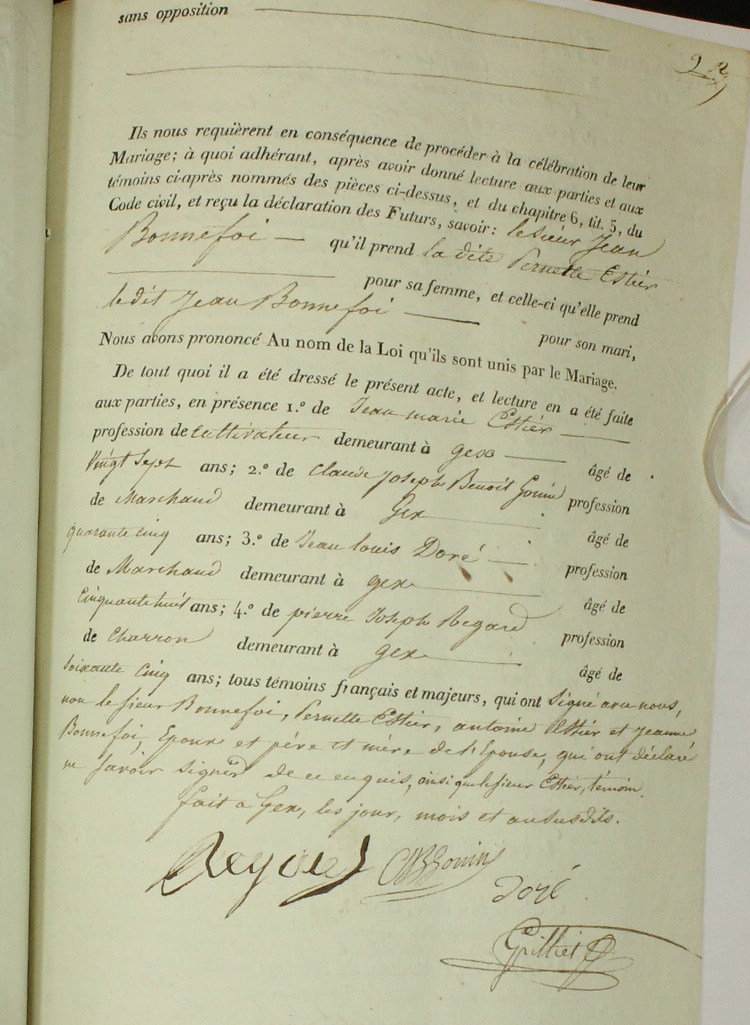 sans opposition
22
Ils nous requièrent en conséquence de procéder à la célébration de leur
Mariage; à quoi adhérant, après avoir donné lecture aux parties et aux
témoins ci-après nommés des pièces ci-dessus, et du chapitre 6, tit. 5, du
Code civil, et reçu la déclaration des Futurs, savoir: le sieur Jean
Bonnefoi — qu'il prend la dite Pernette Estier
pour sa femme, et celle-ci qu'elle prend
le dit Jean Bonnefoi — pour son mari,
Nous avons prononcé Au nom de la Loi qu'ils sont unis par le Mariage.
De tout quoi il a été dressé le présent acte, et lecture en a été faite
aux parties, en présence 1.º de Jean marie Estier —
profession de cultivateur demeurant à gex — âgé de
vingt sept ans; 2.º de Claude Joseph Benoit Gonin profession
de Marchand demeurant à Gex âgé de
quarante cinq ans; 3.º de Jean louis Doré — profession
de Marchand demeurant à gex âgé de
cinquante huit ans; 4.º de pierre Joseph Regard profession
de Charron demeurant à gex âgé de
soixante cinq ans; tous témoins français et majeurs, qui ont signé avec nous,
non le sieur Bonnefoi, Pernette Estier, antoine Estier et Jeanne
Bonnefoi, Epoux et père et mère de l'Epouse, qui ont déclaré
ne savoir signer de ce enquis, ainsi que le sieur Estier, témoin.
fait à Gex, les jour, mois et an susdits.
CJBGonin
Doré